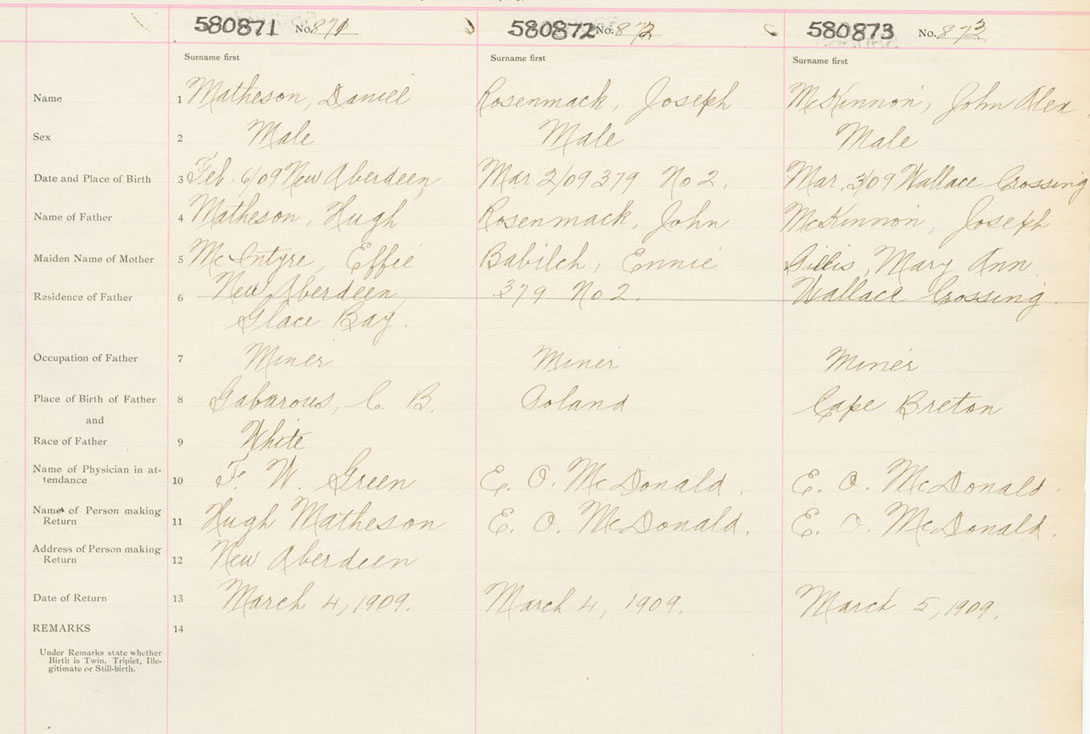 580871 No. 871 580872 No. 872 580873 No. 873
Surname first Surname first Surname first
Name 1 Matheson, Daniel Rosenmack, Joseph McKinnon, John Alex
Sex 2 Male Male Male
Date and Place of Birth 3 Feb. 6/09 New Aberdeen Mar 2/09 379 No 2. Mar. 3/09 Wallace Crossing
Name of Father 4 Matheson, Hugh Rosenmack, John McKinnon, Joseph
Maiden Name of Mother 5 McIntyre, Effie Babilch, Ennie Gillis, Mary Ann
Residence of Father 6 New Aberdeen, 379 No 2. Wallace Crossing.
Glace Bay.
Occupation of Father 7 Miner Miner Miner
Place of Birth of Father 8 Gabarous, C. B. Poland Cape Breton
and
Race of Father 9 White
Name of Physician in at-
tendance 10 F. W. Green E. O. McDonald. E. O. McDonald.
Name of Person making
Return 11 Hugh Matheson E. O. McDonald. E. O. McDonald.
Address of Person making
Return 12 New Aberdeen
Date of Return 13 March 4, 1909. March 4, 1909. March 5, 1909.
REMARKS 14
Under Remarks state whether
Birth is Twin. Triplet, Ille-
gitimate or Still-birth.